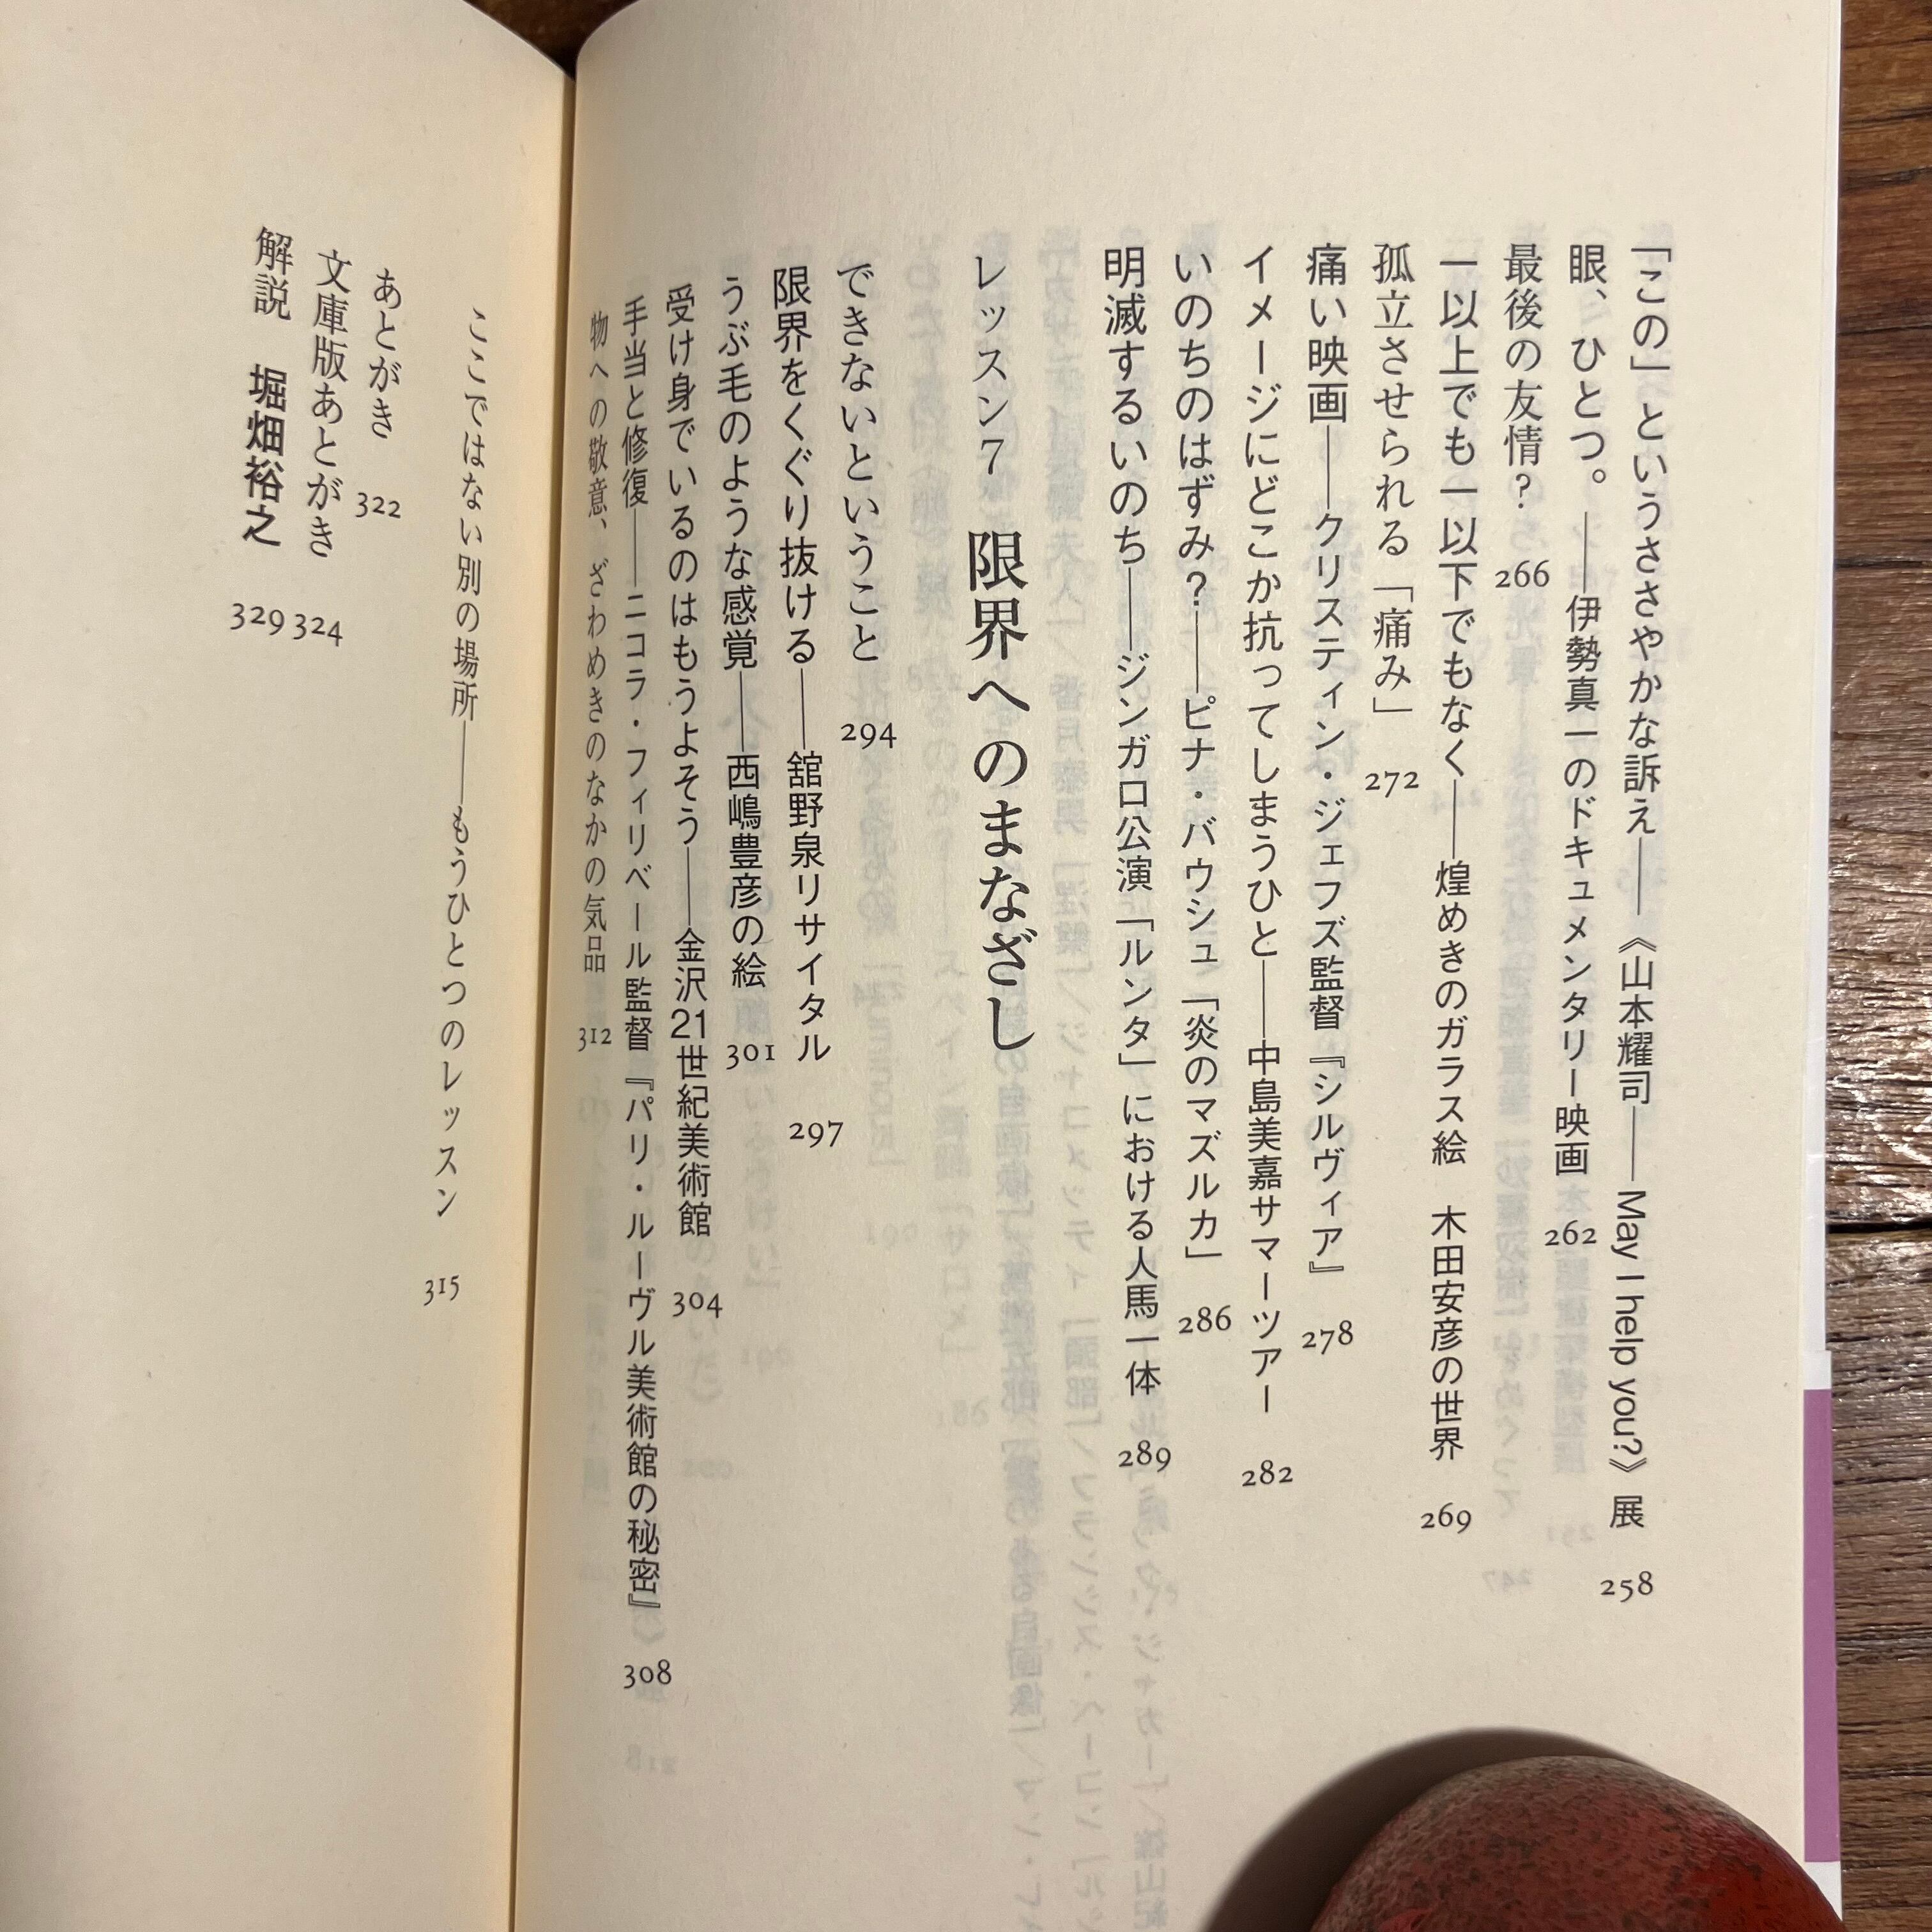 「この」というささやかな訴え——《山本耀司——May I help you?》展 258
眼、ひとつ。——伊勢真一のドキュメンタリー映画 262
最後の友情? 266
一以上でも一以下でもなく——煌めきのガラス絵 木田安彦の世界 269
孤立させられる「痛み」 272
痛い映画——クリスティン・ジェフズ監督『シルヴィア』 278
イメージにどこか抗ってしまうひと——中島美嘉サマーツアー 282
いのちのはずみ?——ピナ・バウシュ「炎のマズルカ」 286
明滅するいのち——ジンガロ公演「ルンタ」における人馬一体 289
レッスン7 限界へのまなざし
できないということ 294
限界をくぐり抜ける——舘野泉リサイタル 297
うぶ毛のような感覚——西嶋豊彦の絵 301
受け身でいるのはもうよそう——金沢21世紀美術館 304
手当と修復——ニコラ・フィリベール監督『パリ・ルーヴル美術館の秘密』 308
物への敬意、ざわめきのなかの気品 312
ここではない別の場所——もうひとつのレッスン 315
あとがき 322
文庫版あとがき 324
解説 堀畑裕之 329